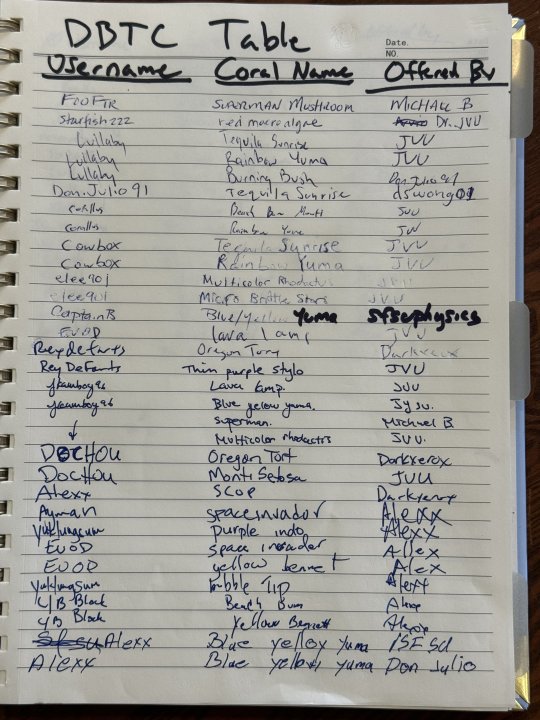 DBTC Table
Date.
NO.
Username Coral Name Offered By
FTOFTR SUPERMAN MUSHROOM MICHALE B
Starfish222 red macroalgae Dr. JVU
Lullaby Tequila Sunrise JVU
Lullaby Rainbow Yuma JVU
Lullaby Burning Bush Don Julio 91
Don.Julio91 Tequila Sunrise dswong01
corallus Beach Bum Monti JVU
corallus Rainbow Yuma JVU
Cowbox Tequila Sunrise JVU
Cowbox Rainbow Yuma JVU
elee901 Multicolor Rhodactus JVU
elee901 Micro Brittle Stars JVU
CaptainB Blue/Yellow Yuma sfsuphysics
EVOD lava lamp JVU
Reydefants Oregon Tort Darkxerox
ReyDeFants Thin purple stylo JVU
jkamboy96 Lava Lamp JVU
jkamboy96 Blue yellow yuma.
↓ superman. Michael B
Multicolor rhodactis JVU.
DOCHOU Oregon Tort Darkxerox
DOCHOU Monti Setosa JVU
Alexx scop Darkxerox
Ayman space invador Alexx
yuklungsum purple indo Alexx
EVOD space invader Allex
EVOD yellow bennet Alex
yuklungsum bubble Tip
Y/B Block Beach Bum
Y/B Block Yellow Bennett
Alexx Blue yelloy yuma
Alexx Blue yellow yuma Don Julio